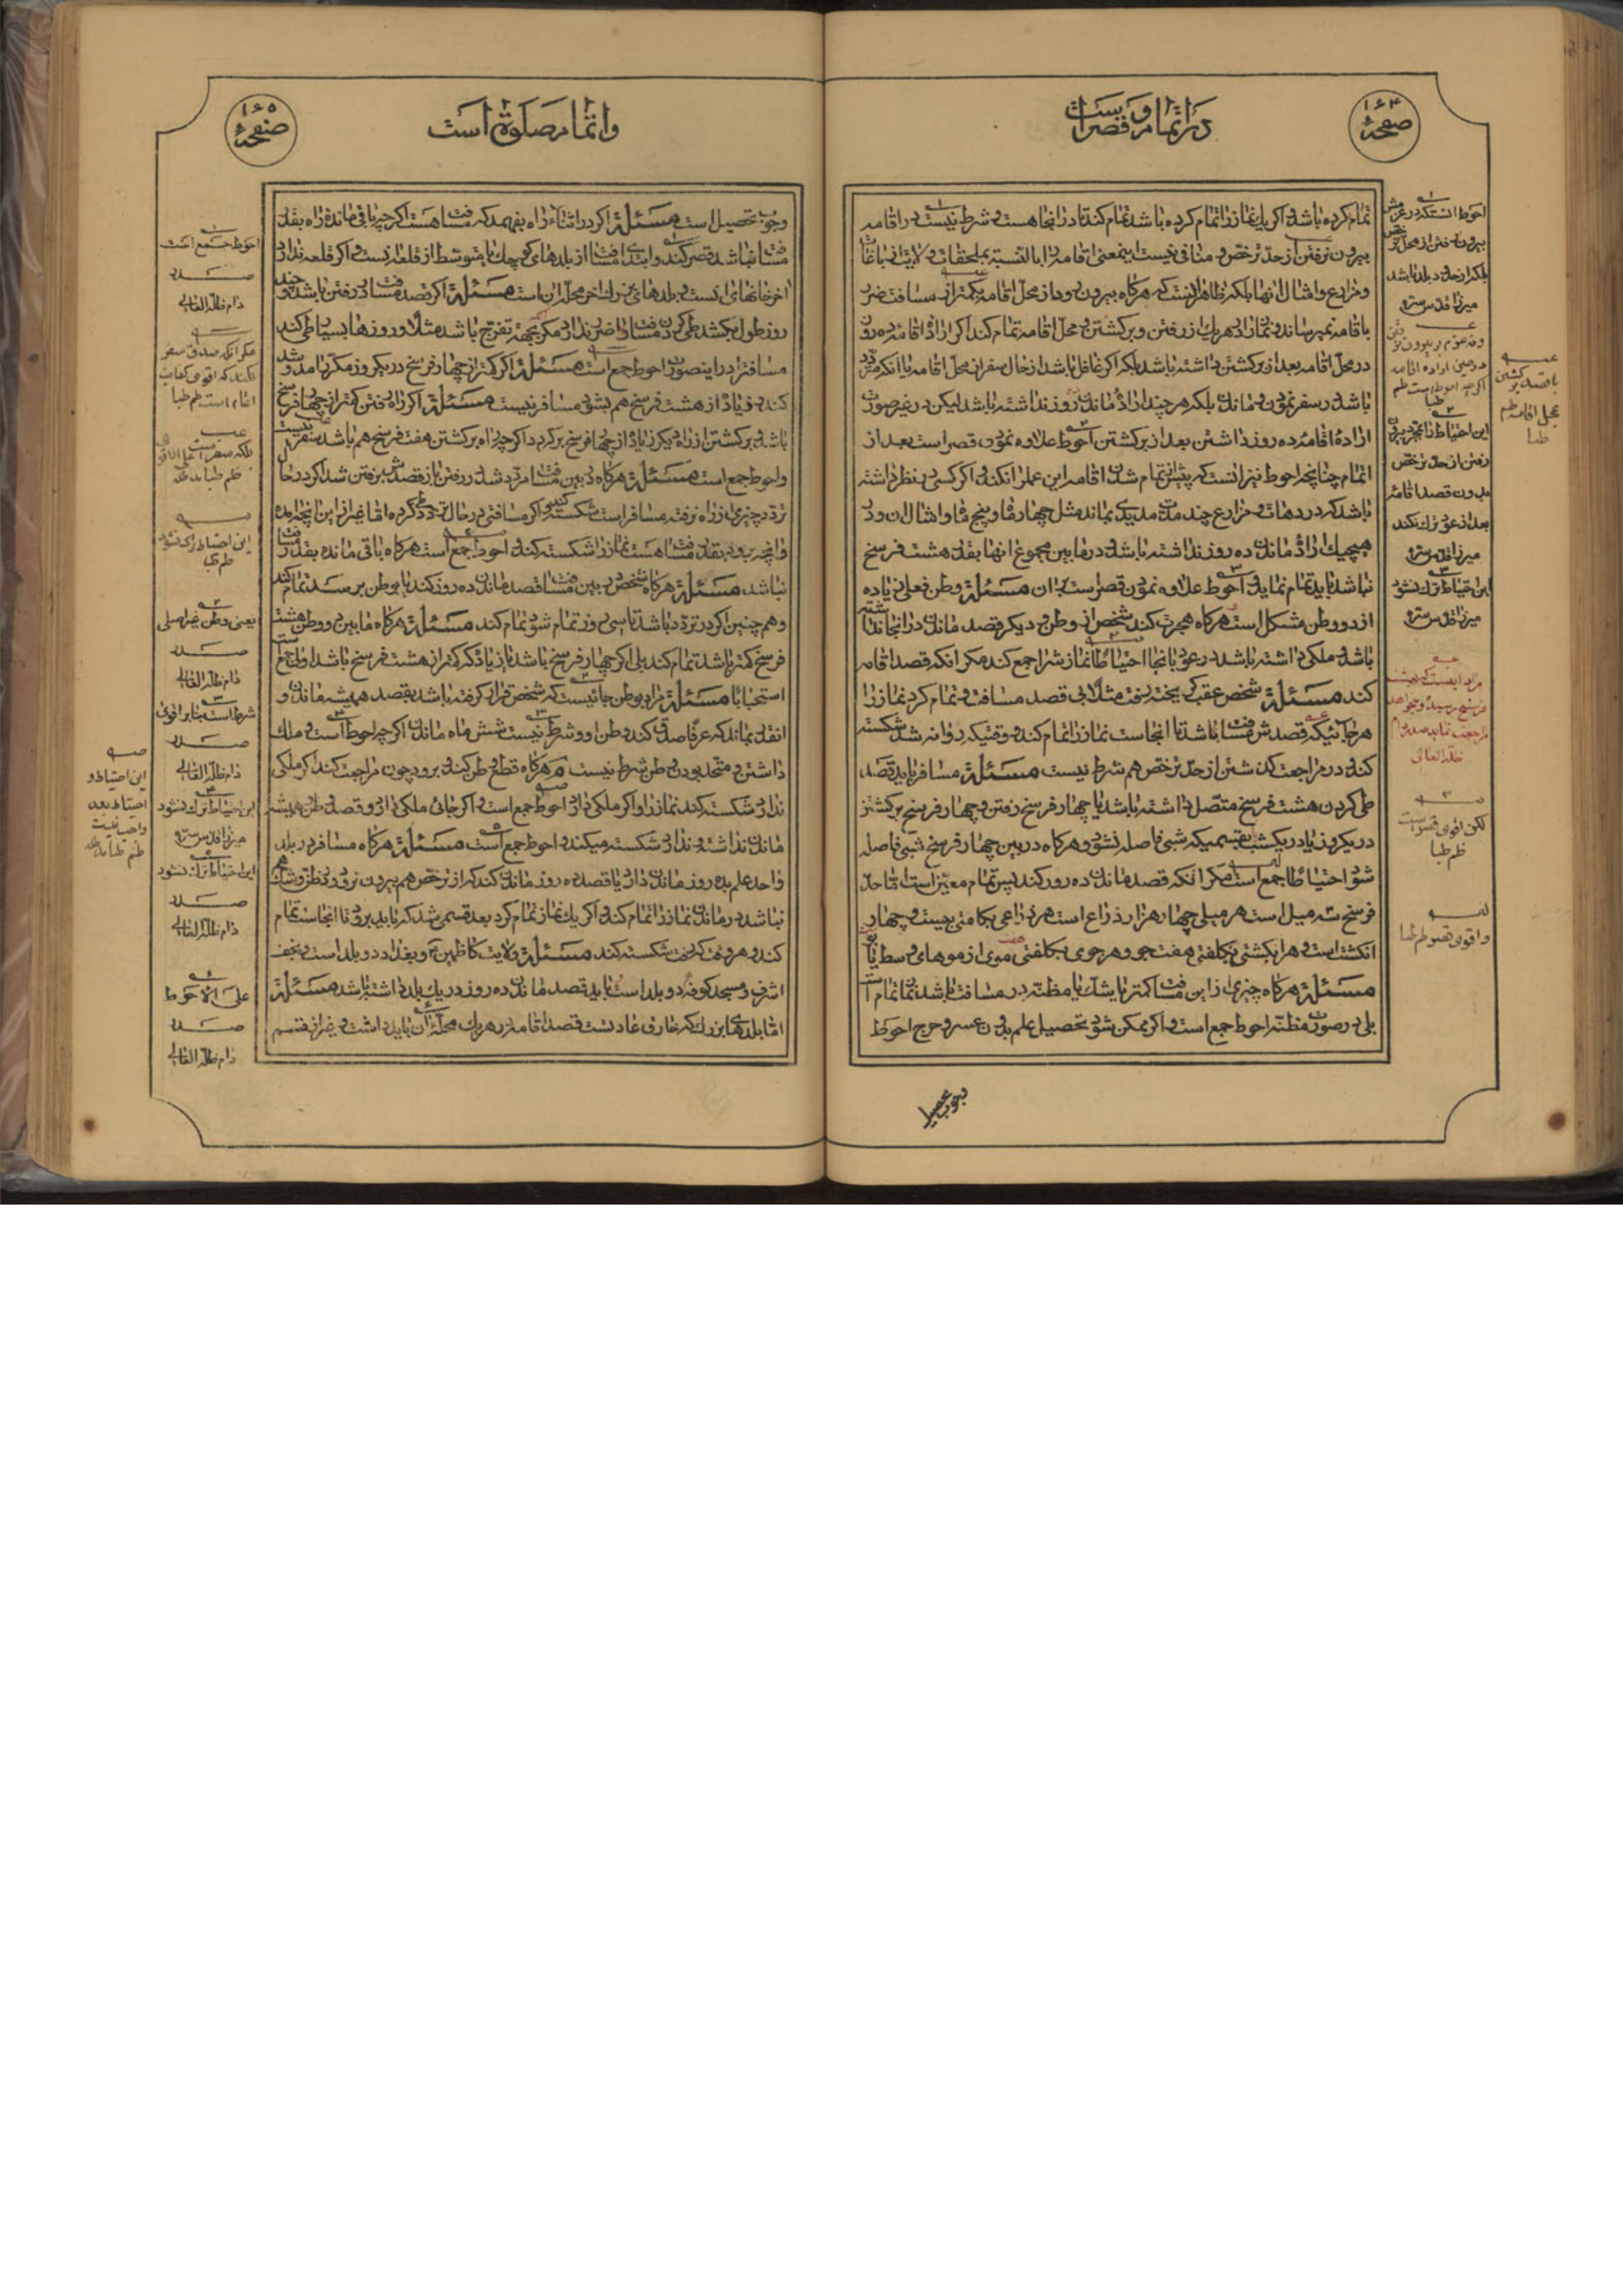 صفحۀ ۱۶۴
در اتمام و قصر است
تمام کرده باشد و اکر یك نماز را تمام کرده باشد تمام کند تا در انجا هست و شرط نیست در اقامه
بیرون نرفتن از حدّ ترخّص و منافی نیست بمعنی اقامه را بالنسبة بملحقات ولایتی باغات
و مزارع و امثال انها بلکه ظاهر اینست که هر کاه بیرون رود از محلّ اقامه بکمتر از مسافت ضرر
باقامه نمیرساند و نماز را در هر یك از رفتن و برکشتن و محلّ اقامه تمام کند اکر ارادۀ اقامۀ ده روز
در محلّ اقامه بعد از برکشتن داشته باشد بلکه اکر غافل باشد از حال سفر از محلّ اقامه یا انکه متردّد
باشد در سفر نمودن و ماندن بلکه هر چند ارادۀ ماندن روز نداشته باشد لیکن در غیر صورت
ارادۀ اقامۀ ده روز داشتن بعد از برکشتن احوط علاوه نمودن قصر است بعد از
اتمام چنانچه احوط نیز انست که پیش از تمام شدن اقامه این عمل را نکند و اکر کسی در نظر داشته
باشد که در دهات و مزارع چند مدّت مدیدی بماند مثل چهار ماه و پنج ماه و امثال ان و در
هیچیك ارادۀ ماندن ده روز نداشته باشد و در مابین مجموع انها بقدر هشت فرسخ
نباشد باید تمام نماید و احوط علاوه نمودن قصر است بر ان مسئلة وطن فعلی زیاده
از دو وطن مشکل است هر کاه هجرت کند شخص از وطن و دیکر قصد ماندن در انجا نداشته
باشد و ملکی داشته باشد در عود بانجا احتیاطا نماز را جمع کند مکر انکه قصد اقامه
کند مسئلة شخص عقب کریخته رفت مثلا بی قصد مسافت و تمام کرد نماز را
هر جائیکه قصدش مسافت باشد تا انجاست نماز را تمام کند و وقتیکه روانه شد شکسته
کند و در مراجعت کذشتن از حدّ ترخص هم شرط نیست مسئلة مسافر باید قصد
طی کردن هشت فرسخ متّصل داشته باشد یا چهار فرسخ رفتن و چهار فرسخ برکشتن
در یکروز یا در یکشب بقسمیکه شبی فاصله نشود و هر کاه در بین چهار فرسخ شبی فاصله
شود احتیاطا جمع است مکر انکه قصد ماندن ده روز کند پس تمام معیّن است امّا حدّ
فرسخ سه میل است هر میلی چهار هزار ذراع است هر ذراعی بکامنی بیست و چهار
انکشت است و هر انکشتی بکلفتی هفت جو و هر جوی بکلفتی هفت موی از موهای وسط یابو
مسئلة هر کاه چیزی از این مسافت کمتر یا بشك یا مظنّه در مسافت باشد نماز تمام است
بلی در صورت مظنّه احوط جمع است و اکر ممکن شود تحصیل علم بدون عسر و حرج احوط
احوط انستکه در عزمش
بیرون رفتن از محل ترخص
بلکه از حدود بلد نباشد
میرزا قدس سره
این احتیاط را بمجرد بیرون
رفتن از حدّ ترخص
بدون قصد اقامۀ
بعد از عود ترك نکند
میرزا قدس سره
این احتیاط ترك نشود
میرزا قدس سره
لکن اقوی قصر است
ظم طبا
و اقوی قصر ظم طبا
صفحۀ ۱۶۵
و اتمام صلوة است
وجوب تحصیل است مسئلة اکر در اثناء راه بفهمد که مسافت هست اکر چه باقی ماندۀ راه بقدر
مسافت نباشد قصر کند و ابتدای مسافت از بلدهای کوچك یا متوسّط از قلعه نیست و اکر قلعه ندارد
اخر خانهای انست و بلدهای بزرك اخر محلّه ان است مسئلة اکر قصد مسافت در رفتن باشد و چند
روز طول بکشد طی کردن مسافت ضرر ندارد مکر بجهة تفرّج باشد مثلا و روزها بسیار طی کند
مسافت را در اینصورت احوط جمع است مسئلة اکر کمتر از چهار فرسخ در یکروز مکرّر امد و شد
کند و زیاد از هشت فرسخ هم بشود مسافر نیست مسئلة اکر راه رفتن کمتر از چهار فرسخ
باشد و برکشتن از راه دیکر زیاد از چهار فرسخ برکردد اکر چه راه برکشتن هفت فرسخ هم باشد مسافر نیست
و احوط جمع است مسئلة هر کاه در بین مسافت مردّد شد در رفتن باز قصدش برفتن شد اکر در حال
تردّد چیزی از راه نرفته مسافر است شکسته کند و اکر مسافتی در حال تردّد طی کرده امّا غیر از این انچه امده
و انچه برود بقدر مسافت هست نماز را شکسته کند و احوط جمع است هر کاه باقی مانده بقدر مسافت
نباشد مسئلة هر کاه شخص در بین مسافت قصد ماندن ده روز کند یا بوطن برسد تمام کند
و هم چنین اکر در تردّد باشد تا سی روز تمام شود تمام کند مسئلة هر کاه مابین دو وطن هشت
فرسخ کمتر باشد تمام کند بلی اکر چهار فرسخ باشد یا زیادتر که کمتر از هشت فرسخ باشد اولی جمع است
استحبابا مسئلة مراد بوطن جائیست که شخص قرار کرفته باشد بقصد همیشه ماندن و
انقدر بماند که عرفا صدق کند وطن او و شرط نیست شش ماه ماندن اکر چه احوط است و ملك
داشتن و متّحد بودن وطن شرط نیست و هر کاه قطع وطن کند و برود چون مراجعت کند اکر ملکی
ندارد شکسته کند نماز را و اکر ملکی دارد احوط جمع است و اکر جائی ملکی دارد و قصد وطن همیشه
ماندن نداشته و ندارد شکسته میکند و احوط جمع است مسئلة هر کاه مسافر در بلد
واحد علم بده روز ماندن دارد یا قصد ده روز ماندن کند که از ترخص هم بیرون نرود و در نظر و شك هم
نباشد در ماندن نماز را تمام کند و اکر یك نماز تمام کرد بعد قسمی شد که باید برود تا انجاست تمام
کند و هر وقت که رفت شکسته کند مسئلة ولایت کاظمین و بغداد دو بلد است و نجف
اشرف و مسجد کوفه دو بلد است باید قصد ماندن ده روز در یك بلد داشته باشد مسئلة
امّا بلدهای بزرك که خارق عادتست قصد اقامه در هر یك محلّۀ ان باید داشت و غیر از قسم
احوط جمع است
صدر
دام ظلّه العالی
این احتیاط ترك نشود
ظم طبا
یعنی وطن غیر اصلی
صدر
دام ظلّه العالی
شرط است بنا بر اقوی
صدر
دام ظلّه العالی
این احتیاط ترك نشود
میرزا قدس سره
این احتیاط ترك نشود
صدر
دام ظلّه العالی
علی الاحوط
صدر
دام ظلّه العالی
این احتیاط و
احتیاط بعد
واجب نیست